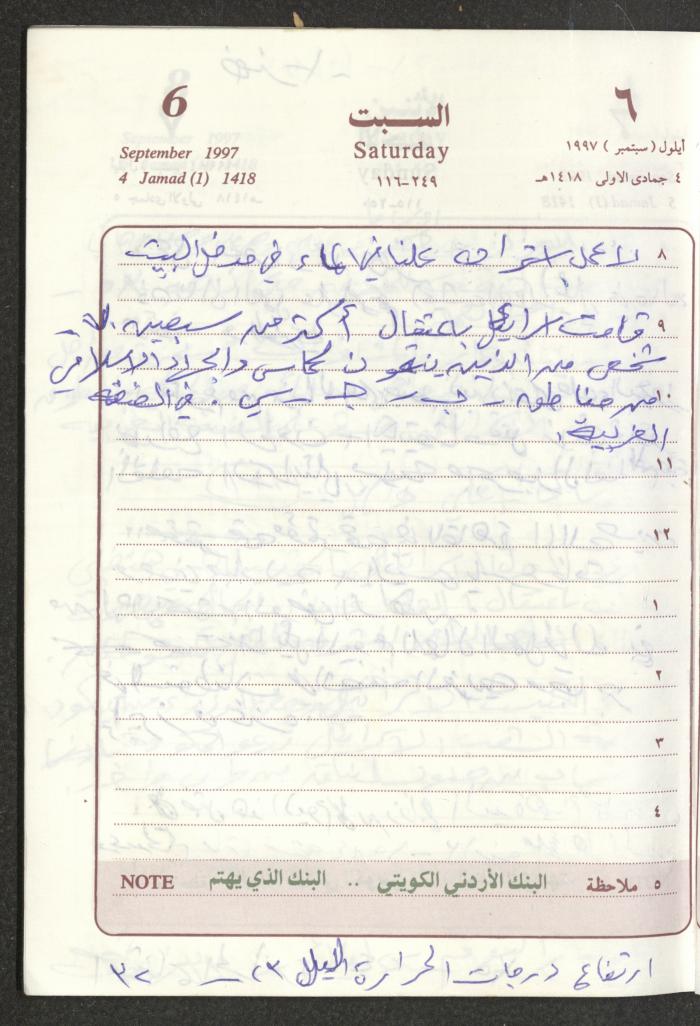 6
السبت
٦
September 1997
Saturday
أيلول ( سبتمبر ) ١٩٩٧
4 Jamad (1) 1418
٢٤٩-١١٦
٤ جمادى الاولى ١٤١٨هـ
٨ لا عمل في مدخل البيت
٩ قامت اسرائيل باعتقال أكثر من سبعين
شخص من الذين ينتمون لحماس والجهاد الاسلامي
١٠ من مناطق ب في الضفه
الغربية.
١١
١٢
١
٢
٣
٤
٥ ملاحظة البنك الأردني الكويتي .. البنك الذي يهتم NOTE
ارتفاع درجات الحرارة الليل ٢٣ – ٣٢